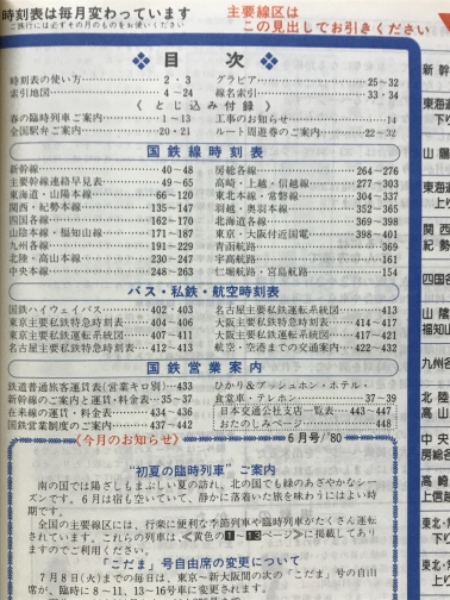 時刻表は毎月変わっています
ご旅行には必ずその月のものをお使いください
主要線区は
この見出しでお引きください
目次
時刻表の使い方 2・3
索引地図 4〜24
グラビア 25〜32
線名索引 33・34
《とじ込み付録》
春の臨時列車ご案内 1〜13
全国駅弁ご案内 20・21
工事のお知らせ 14
ルート周遊券のご案内 22〜32
国鉄線時刻表
新幹線 40〜48
主要幹線連絡早見表 49〜65
東海道・山陽本線 66〜120
関西・紀勢本線 135〜147
四国各線 162〜170
山陰本線・福知山線 171〜187
九州各線 191〜229
北陸・高山本線 230〜247
中央本線 248〜263
房総各線 264〜276
高崎・上越・信越線 277〜303
東北本線・常磐線 304〜337
羽越・奥羽本線 352〜365
北海道各線 369〜398
東京・大阪付近国電 398〜401
青函航路 369
宇高航路 161
仁堀航路・宮島航路 154
バス・私鉄・航空時刻表
国鉄ハイウェイバス 402・403
東京主要私鉄特急時刻表 404〜406
東京主要私鉄運転系統図 407〜411
名古屋主要私鉄特急時刻表 412〜413
名古屋主要私鉄運転系統図 413
大阪主要私鉄特急時刻表 414〜417
大阪主要私鉄運転系統図 417〜421
航空・空港までの交通案内 422〜432
国鉄営業案内
鉄道普通旅客運賃表(営業キロ別) 433
新幹線のご案内と運賃・料金表 35〜37
在来線の運賃・料金表 434〜436
国鉄営業制度のご案内 437〜442
ひかり&プッシュホン・ホテル・
食堂車・テレホン 37〜39
日本交通公社支店一覧表 443〜447
おたのしみページ 448
《今月のお知らせ》
6月号/'80
“初夏の臨時列車”ご案内
南の国では陽ざしもまぶしい夏の訪れ、北の国でも緑のあざやかなシー
ズンです。6月は宿も空いていて、静かに落着いた旅を味わうにはよい時
期です。
全国の主要線区には、行楽に便利な季節列車や臨時列車がたくさん運転
されています。これらの列車は、≪黄色の1〜13ページ≫に掲載してあり
ますのでご利用ください。
「こだま」号自由席の変更について
7月8日(火)までの毎日は、東京〜新大阪間の次の「こだま」号の自由
席が、臨時に8〜11、13〜16号車に変更されます。
新幹
東海道
下り
山陽
東海道
上り
関西
紀勢
四国各
山陰
福知山
九州各
北陸
高山
中央
房総各
高崎
上信越
東北・常
下り
東北・常
上り